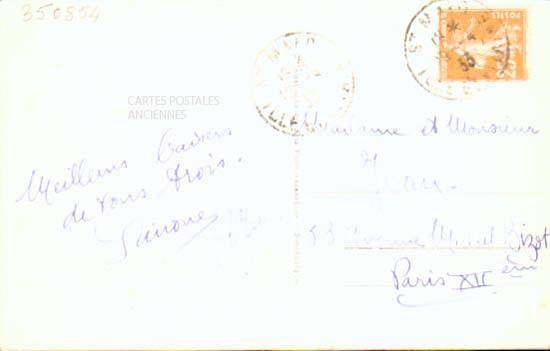 350854
ST MALO
ILLE
POSTES
25
CARTES POSTALES
ANCIENNES
Meilleurs baisers
de vous trois.
Simone
Madame et Monsieur
Jean.
53 Avenue Michel Bizot
Paris XII ème